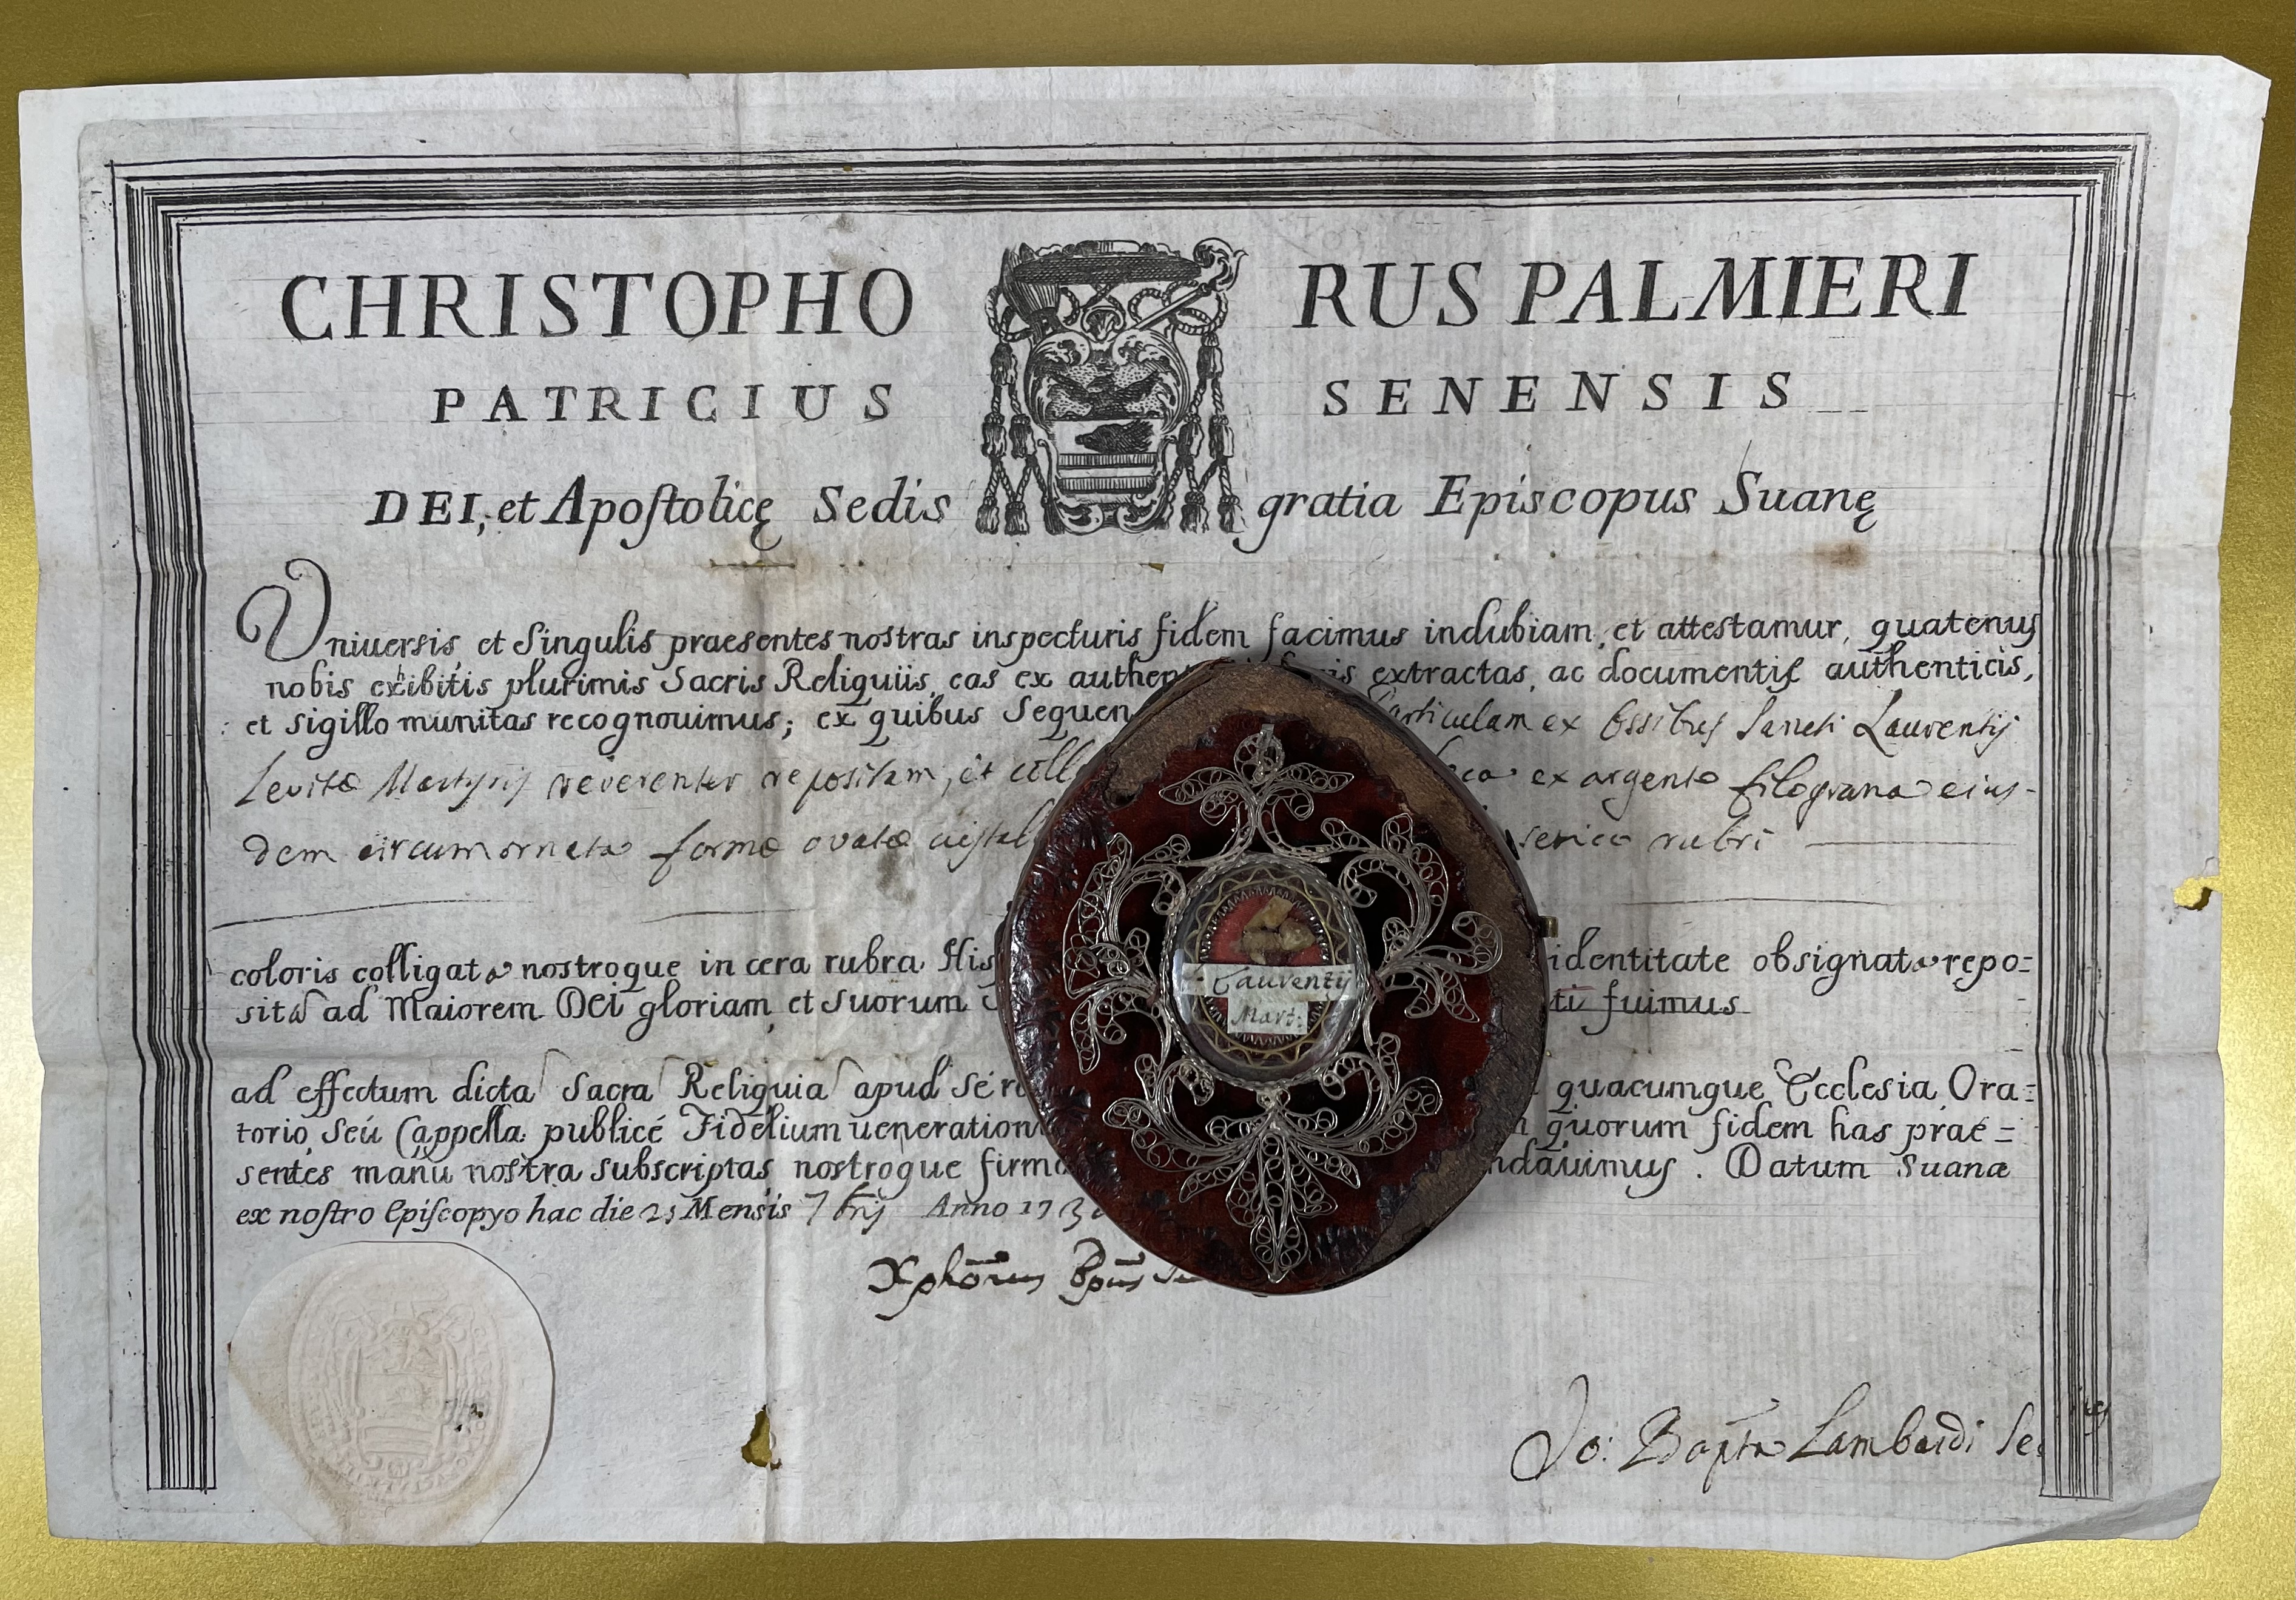 CHRISTOPHO RUS PALMIERI
PATRICIUS SENENSIS
DEI, et Apostolicę Sedis gratia Episcopus Suanę
Vniuersis, et Singulis praesentes nostras inspecturis fidem facimus indubiam, et attestamur, quatenus
nobis exhibitis plurimis Sacris Reliquiis, eas ex authen extractas, ac documentis authenticis,
et sigillo munitas recognouimus; ex quibus Sequen Particulam ex Ossibus Sancti Laurentij
Levitæ Martyris reverenter repositam, et coll ex argento filograna eius-
dem circumornata formæ ovatæ cristal serico rubri
coloris colligata nostroque in cera rubra His identitate obsignata repo=
sita ad Maiorem DEI gloriam, et suorum ti fuimus
ad effectum dicta Sacra Reliquia apud se re quacumque Ecclesia, Ora=
torio, seu Cappella publicé Fidelium ueneration quorum fidem has prae=
sentes manu nostra subscriptas, nostroque firmo ndauimus. Datum Suanæ
ex nostro Episcopyo hac die 25 Mensis 7bris Anno 173
Xphorus Epus
Jo: Bapta Lambardi Sec
Laurentij
Mart: